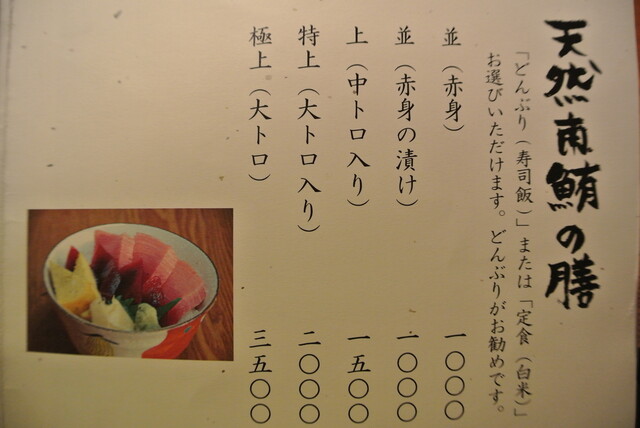 天然南鮪の膳
「どんぶり（寿司飯）」または「定食（白米）」
お選びいただけます。どんぶりがお勧めです。
並（赤身） 一〇〇〇
並（赤身の漬け） 一〇〇〇
上（中トロ入り） 一五〇〇
特上（大トロ入り） 二〇〇〇
極上（大トロ） 三五〇〇